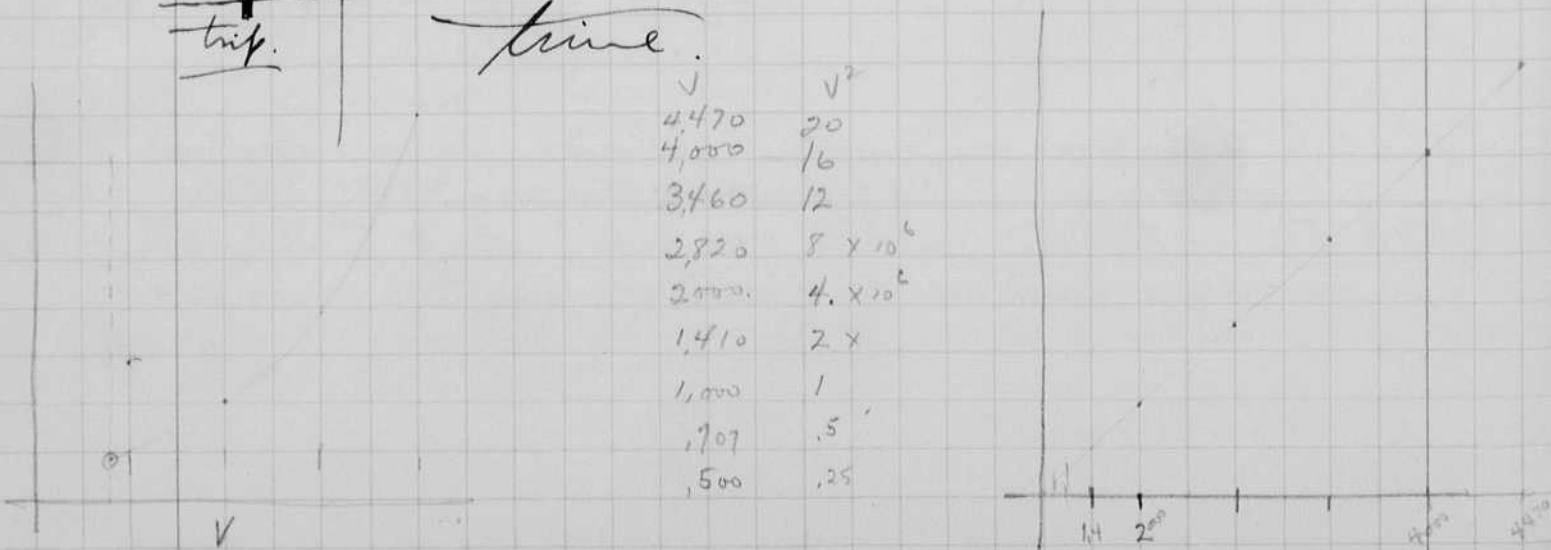 trip.
time.
V V²
4,470 20
4,000 16
3,460 12
2,820 8 × 10⁶
2000. 4. × 10⁶
1,410 2 ×
1,000 1
,707 .5
,500 .25
V
1,4 2000 4000 4470